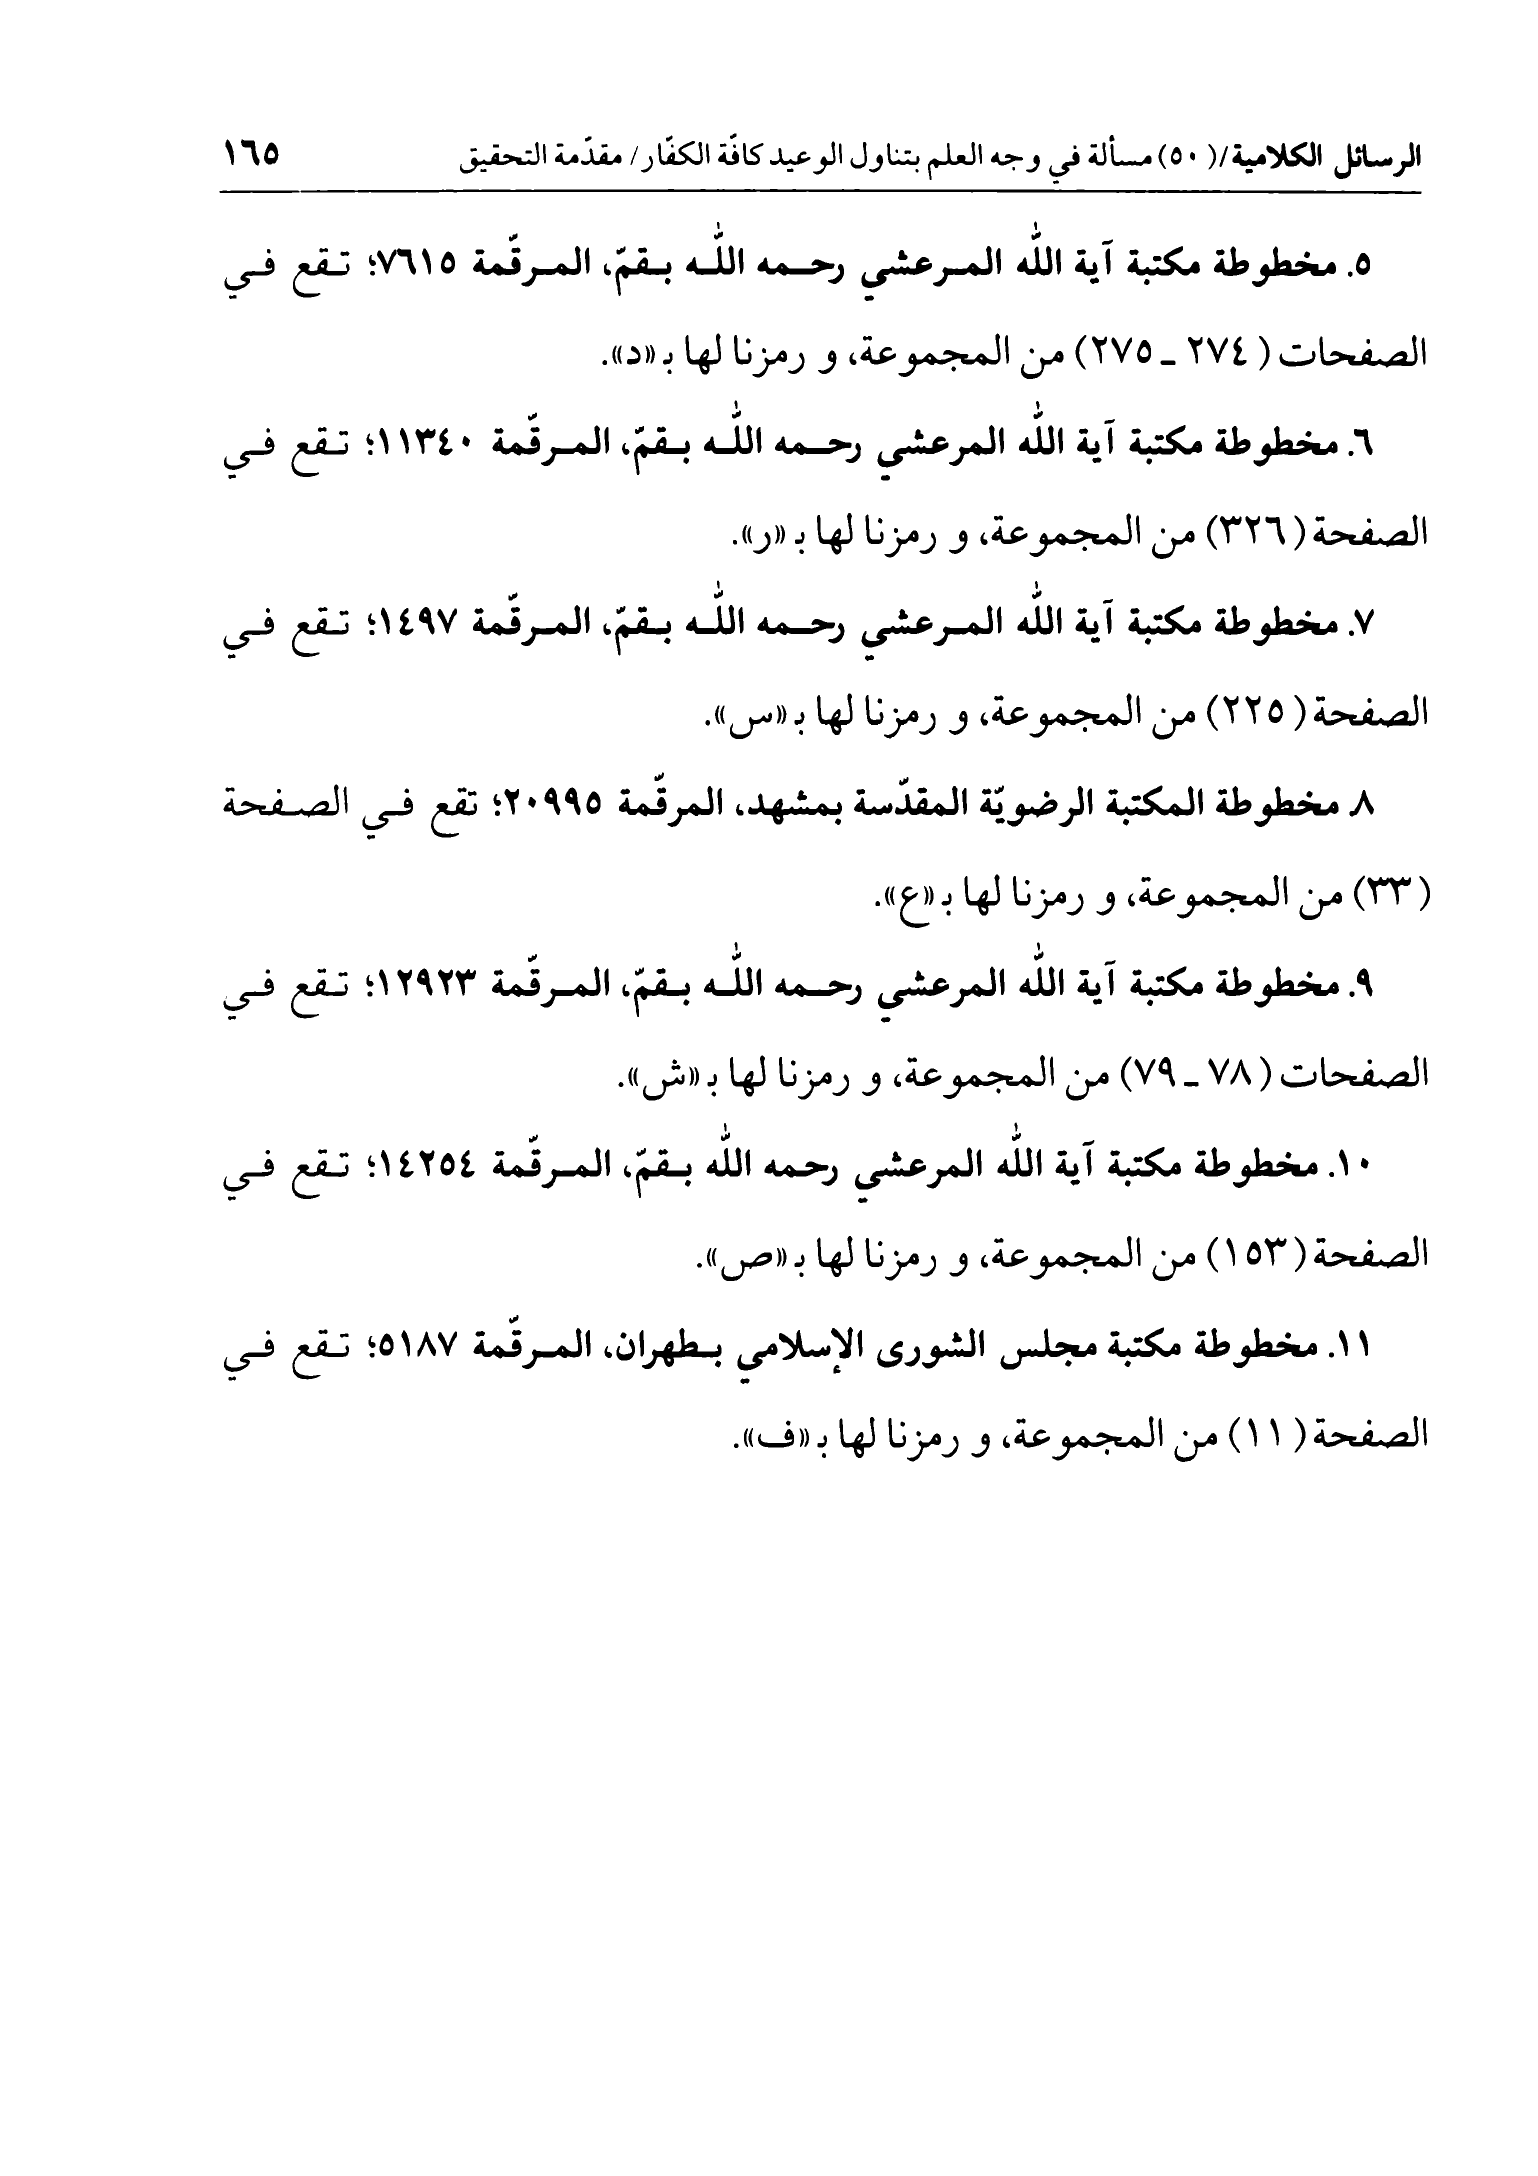 الرسائل الكلامية/ (٥٠) مسألة في وجه العلم بتناول الوعيد كافّة الكفّار/ مقدّمة التحقيق ١٦٥
٥. مخطوطة مكتبة آية اللّٰه المرعشي رحمه اللّٰه بقمّ، المرقّمة ٧٦١٥؛ تقع في
الصفحات (٢٧٤ ـ ٢٧٥) من المجموعة، و رمزنا لها بـ «د».
٦. مخطوطة مكتبة آية اللّٰه المرعشي رحمه اللّٰه بقمّ، المرقّمة ١١٣٤٠؛ تقع في
الصفحة (٣٢٦) من المجموعة، و رمزنا لها بـ «ر».
٧. مخطوطة مكتبة آية اللّٰه المرعشي رحمه اللّٰه بقمّ، المرقّمة ١٤٩٧؛ تقع في
الصفحة (٢٢٥) من المجموعة، و رمزنا لها بـ «س».
٨. مخطوطة المكتبة الرضويّة المقدّسة بمشهد، المرقّمة ٢٠٩٩٥؛ تقع في الصفحة
(٣٣) من المجموعة، و رمزنا لها بـ «ع».
٩. مخطوطة مكتبة آية اللّٰه المرعشي رحمه اللّٰه بقمّ، المرقّمة ١٢٩٢٣؛ تقع في
الصفحات (٧٨ ـ ٧٩) من المجموعة، و رمزنا لها بـ «ش».
١٠. مخطوطة مكتبة آية اللّٰه المرعشي رحمه اللّٰه بقمّ، المرقّمة ١٤٢٥٤؛ تقع في
الصفحة (١٥٣) من المجموعة، و رمزنا لها بـ «ص».
١١. مخطوطة مكتبة مجلس الشورى الإسلامي بطهران، المرقّمة ٥١٨٧؛ تقع في
الصفحة (١١) من المجموعة، و رمزنا لها بـ «ف».